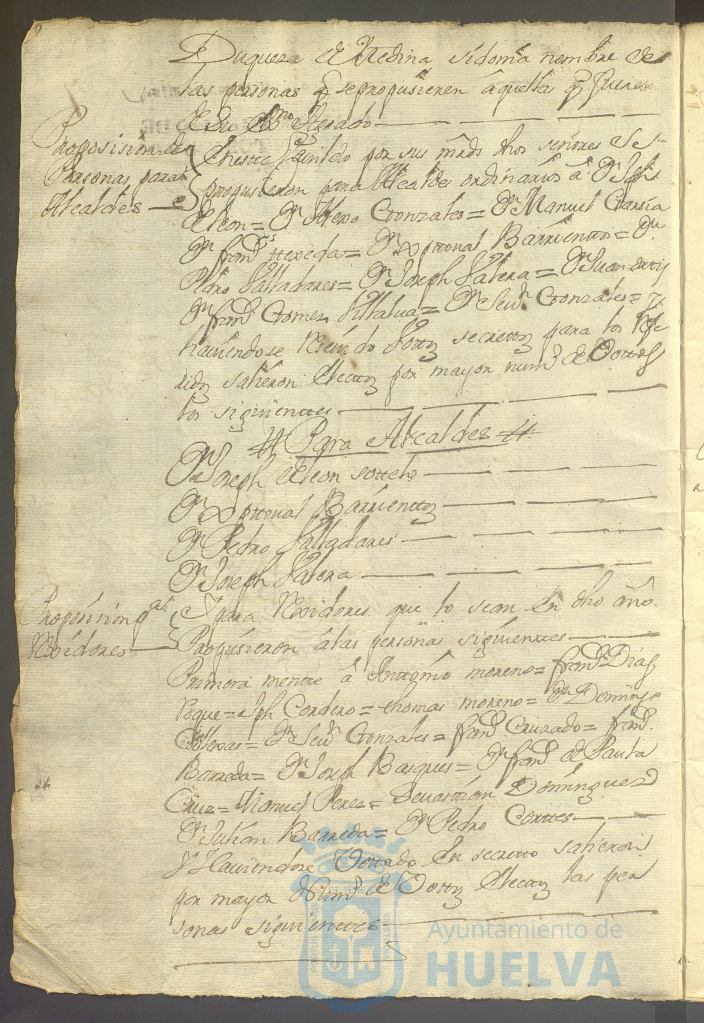 Duqueza de Medina sidonia nombre de
las personas q se propusieren aquellas q fueren
de su Agrado
Proposision de
Personas para
Alcaldes
En este Cavildo por sus mrds dhos señores Se
propusieron para Alcaldes ordinarios â Dn Jph
de leon = Dn Alexo Gonzales = Dn Manuel Garsia
Dn franco = Dn Xptoval Barrientos = Dn
Pedro Valladares = Dn Joseph Valera = Dn Juan
Dn franco Gomes Villalva = Dn Sevn Gonzales = y
haviendose para los
salieron electos por mayor numo de Votos
los siguientes
# Para Alcaldes #
Dn Joseph de leon sotelo
Dn Xptoval Barrientos
Dn Pedro Valladares
Dn Joseph Valera
Proposision pa
Rexidores
Y para Rexidores que lo sean en dho año
Propusieron â las personas siguientes
Primera mente â Anttonio moreno = franco Dias
Roque = Jph Cordero = thomas moreno = Dn Domingo
= Dn Sevn Gonzales = franco Cruzado = franco
Barreda = Dn Joseph Basques = Dn franco de Santa
Cruz = Manuel Peres = Sevastian Dominguez
Dn Julian Barreda = Dn Pedro Cortes
Y Haviendose Votado en secretto salieron
por mayor Numo de Votos electos las per
sonas siguientes
Ayuntamiento de
HUELVA